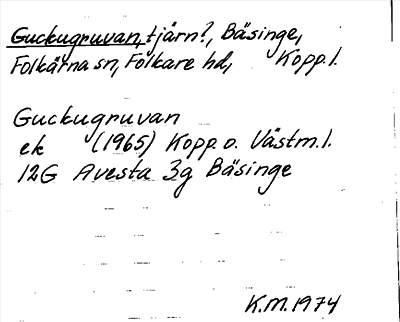 Guckugruvan, tjärn?, Bäsinge,
Folkärna sn, Folkare hd, Kopp. l.
Guckugruvan
ek (1965) Kopp. o. Västm. l.
12G Avesta 3g Bäsinge
K.M. 1974